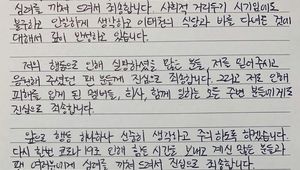 심려를 끼쳐 드려서 죄송합니다. 사회적 거리두기 시기임에도
불구하고 안일하게 생각하고 이태원의 식당과 바를 다녀온 것에
대해서 깊이 반성하고 있습니다.
저의 행동으로 인해 실망하셨을 많은 분들, 저를 믿어주시고
응원해 주셨던 팬 분들께 진심으로 죄송합니다. 그리고 저로 인해
피해를 입게 된 멤버들, 회사, 함께 일하는 모든 주변 분들에게도
진심으로 죄송합니다.
앞으로 행동 하나하나 신중히 생각하고 주의하도록 하겠습니다.
다시 한번 코로나 19로 인해 힘든 시간을 보내고 계신 많은 분들과
팬 여러분에게 심려를 끼쳐 드려서 진심으로 죄송합니다.